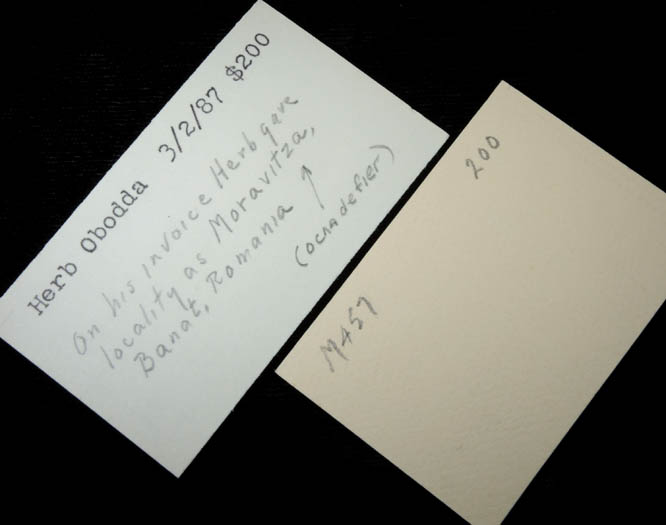 Herb Obodda 3/2/87 $200
On his invoice Herb gave
locality as Moravitza,
Banat, Romania ↑
(ocnadefier)
200
M457